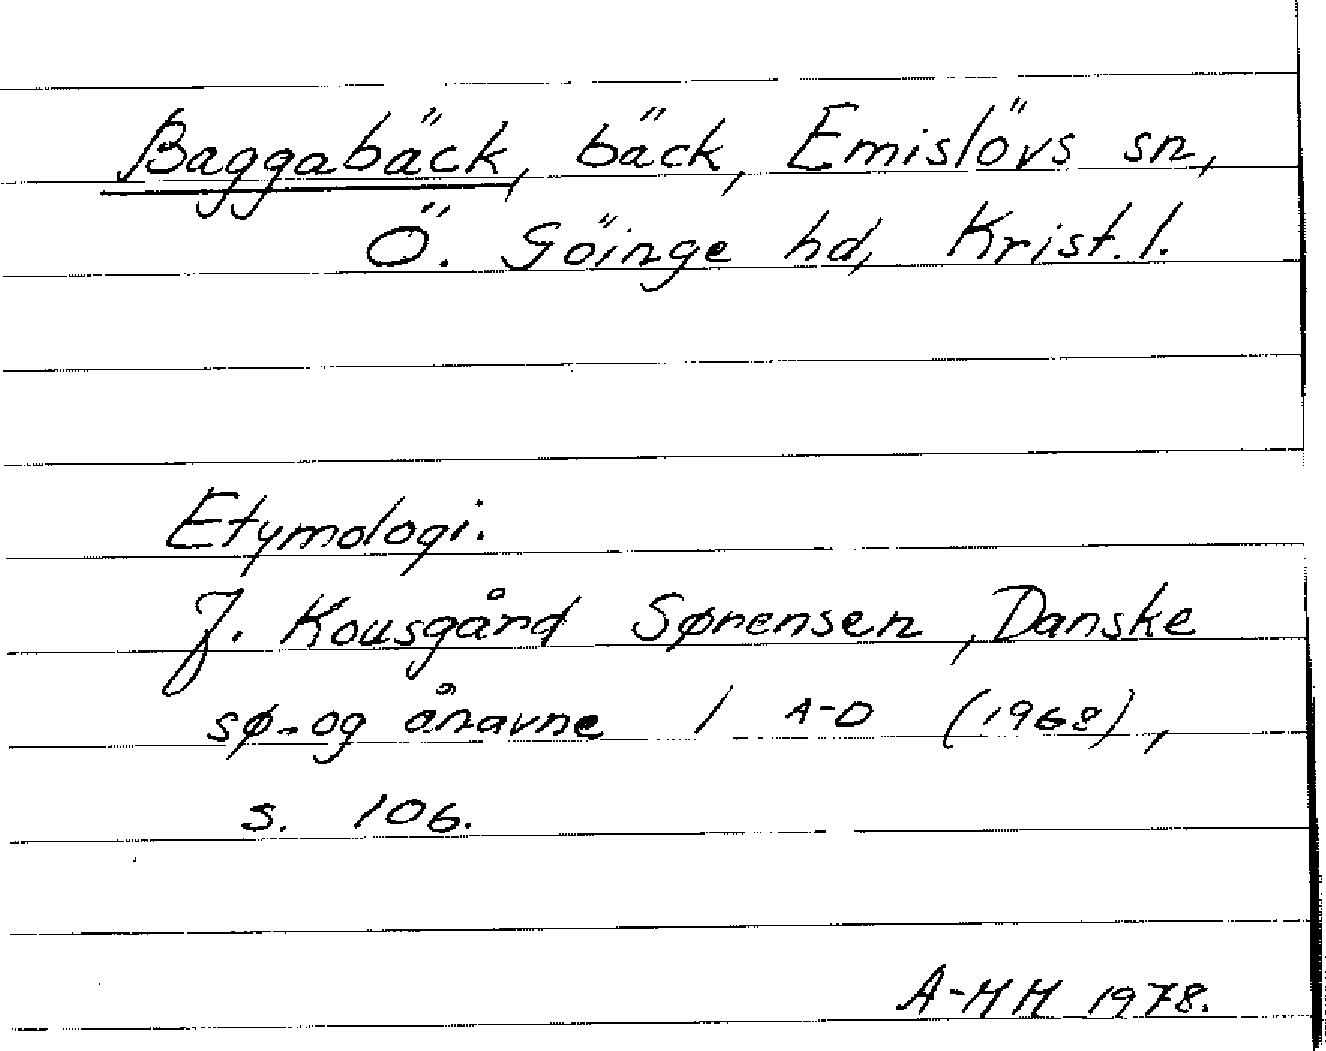 Baggabäck, bäck, Emislövs sn,
Ö. Göinge hd, Krist. l.
Etymologi.
J. Kousgård Sørensen, Danske
sø- og ånavne 1 A-D (1968),
s. 106.
A-HH 1978.